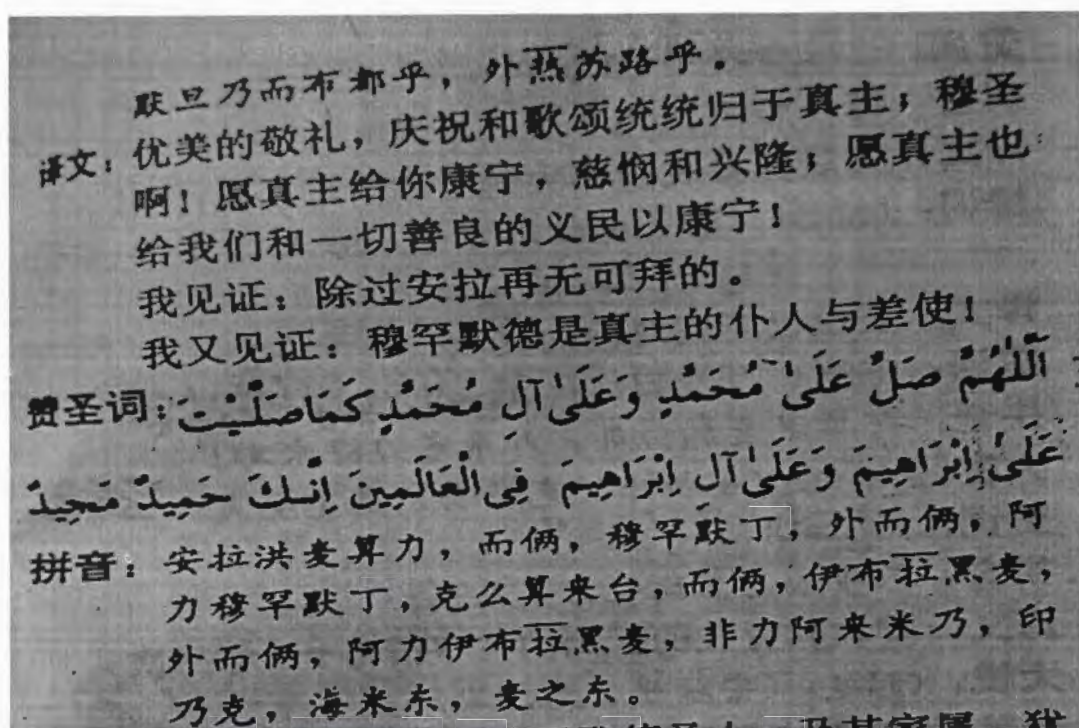 默旦乃而布都乎，外热苏路乎。
译文：优美的敬礼，庆祝和歌颂统统归于真主；穆圣
啊！愿真主给你康宁，慈悯和兴隆；愿真主也
给我们和一切善良的义民以康宁！
我见证：除过安拉再无可拜的。
我又见证：穆罕默德是真主的仆人与差使！
赞圣词：اَللّٰهُمَّ صَلِّ عَلَىٰ مُحَمَّدٍ وَعَلَىٰ آلِ مُحَمَّدٍ كَمَا صَلَّيْتَ
عَلَىٰ اِبْرَاهِيمَ وَعَلَىٰ آلِ اِبْرَاهِيمَ فِى الْعَالَمِينَ اِنَّكَ حَمِيدٌ مَجِيدٌ
拼音：安拉洪麦算力，而俩，穆罕默丁，外而俩，阿
力穆罕默丁，克么算来台，而俩，伊布拉黑麦，
外而俩，阿力伊布拉黑麦，非力阿来米乃，印
乃克，海米东，麦之东。